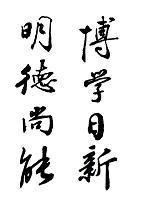 博学日新
明德尚能